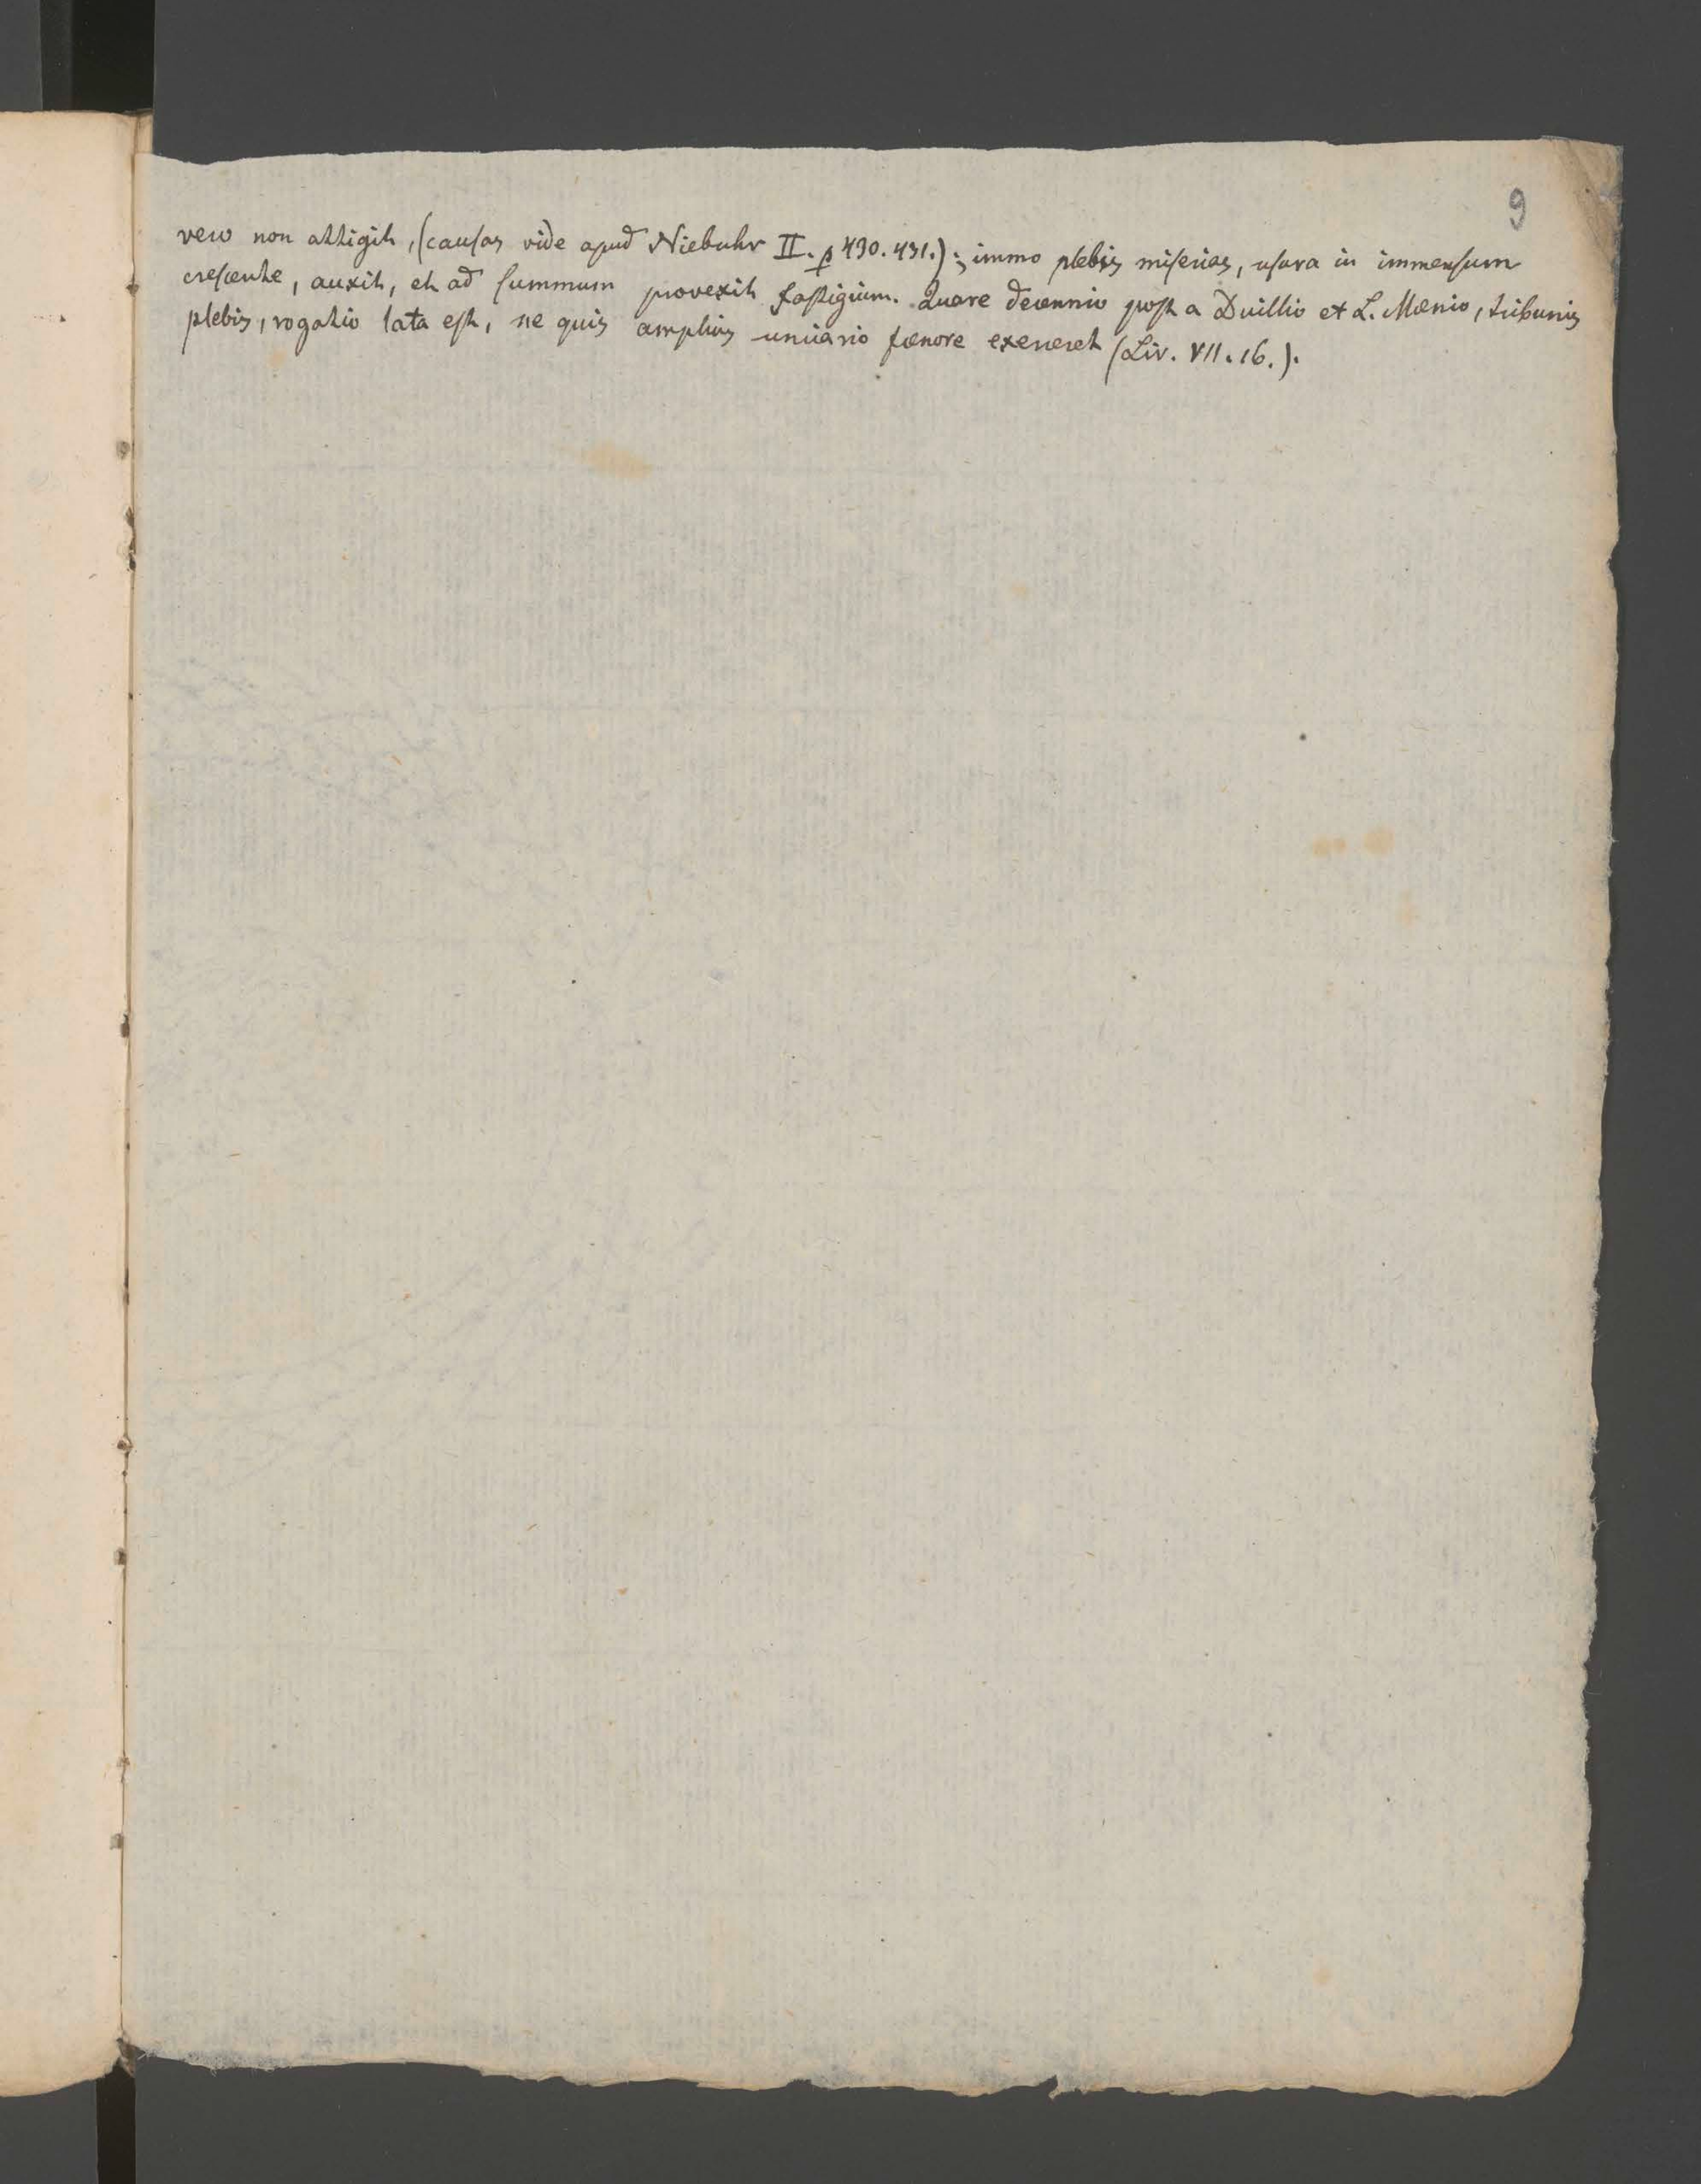 9
vero non attigit, (causas vide apud Niebuhr II. p 430. 431.); immo plebis miserias, usura in immensum
crescente, auxit, et ad summum provexit fastigium. Quare decennio post a Duillio et L. Mænio, tribunis
plebis, rogatio lata est, ne quis amplius unciario fœnore exerceret (Liv. VII. 16.).